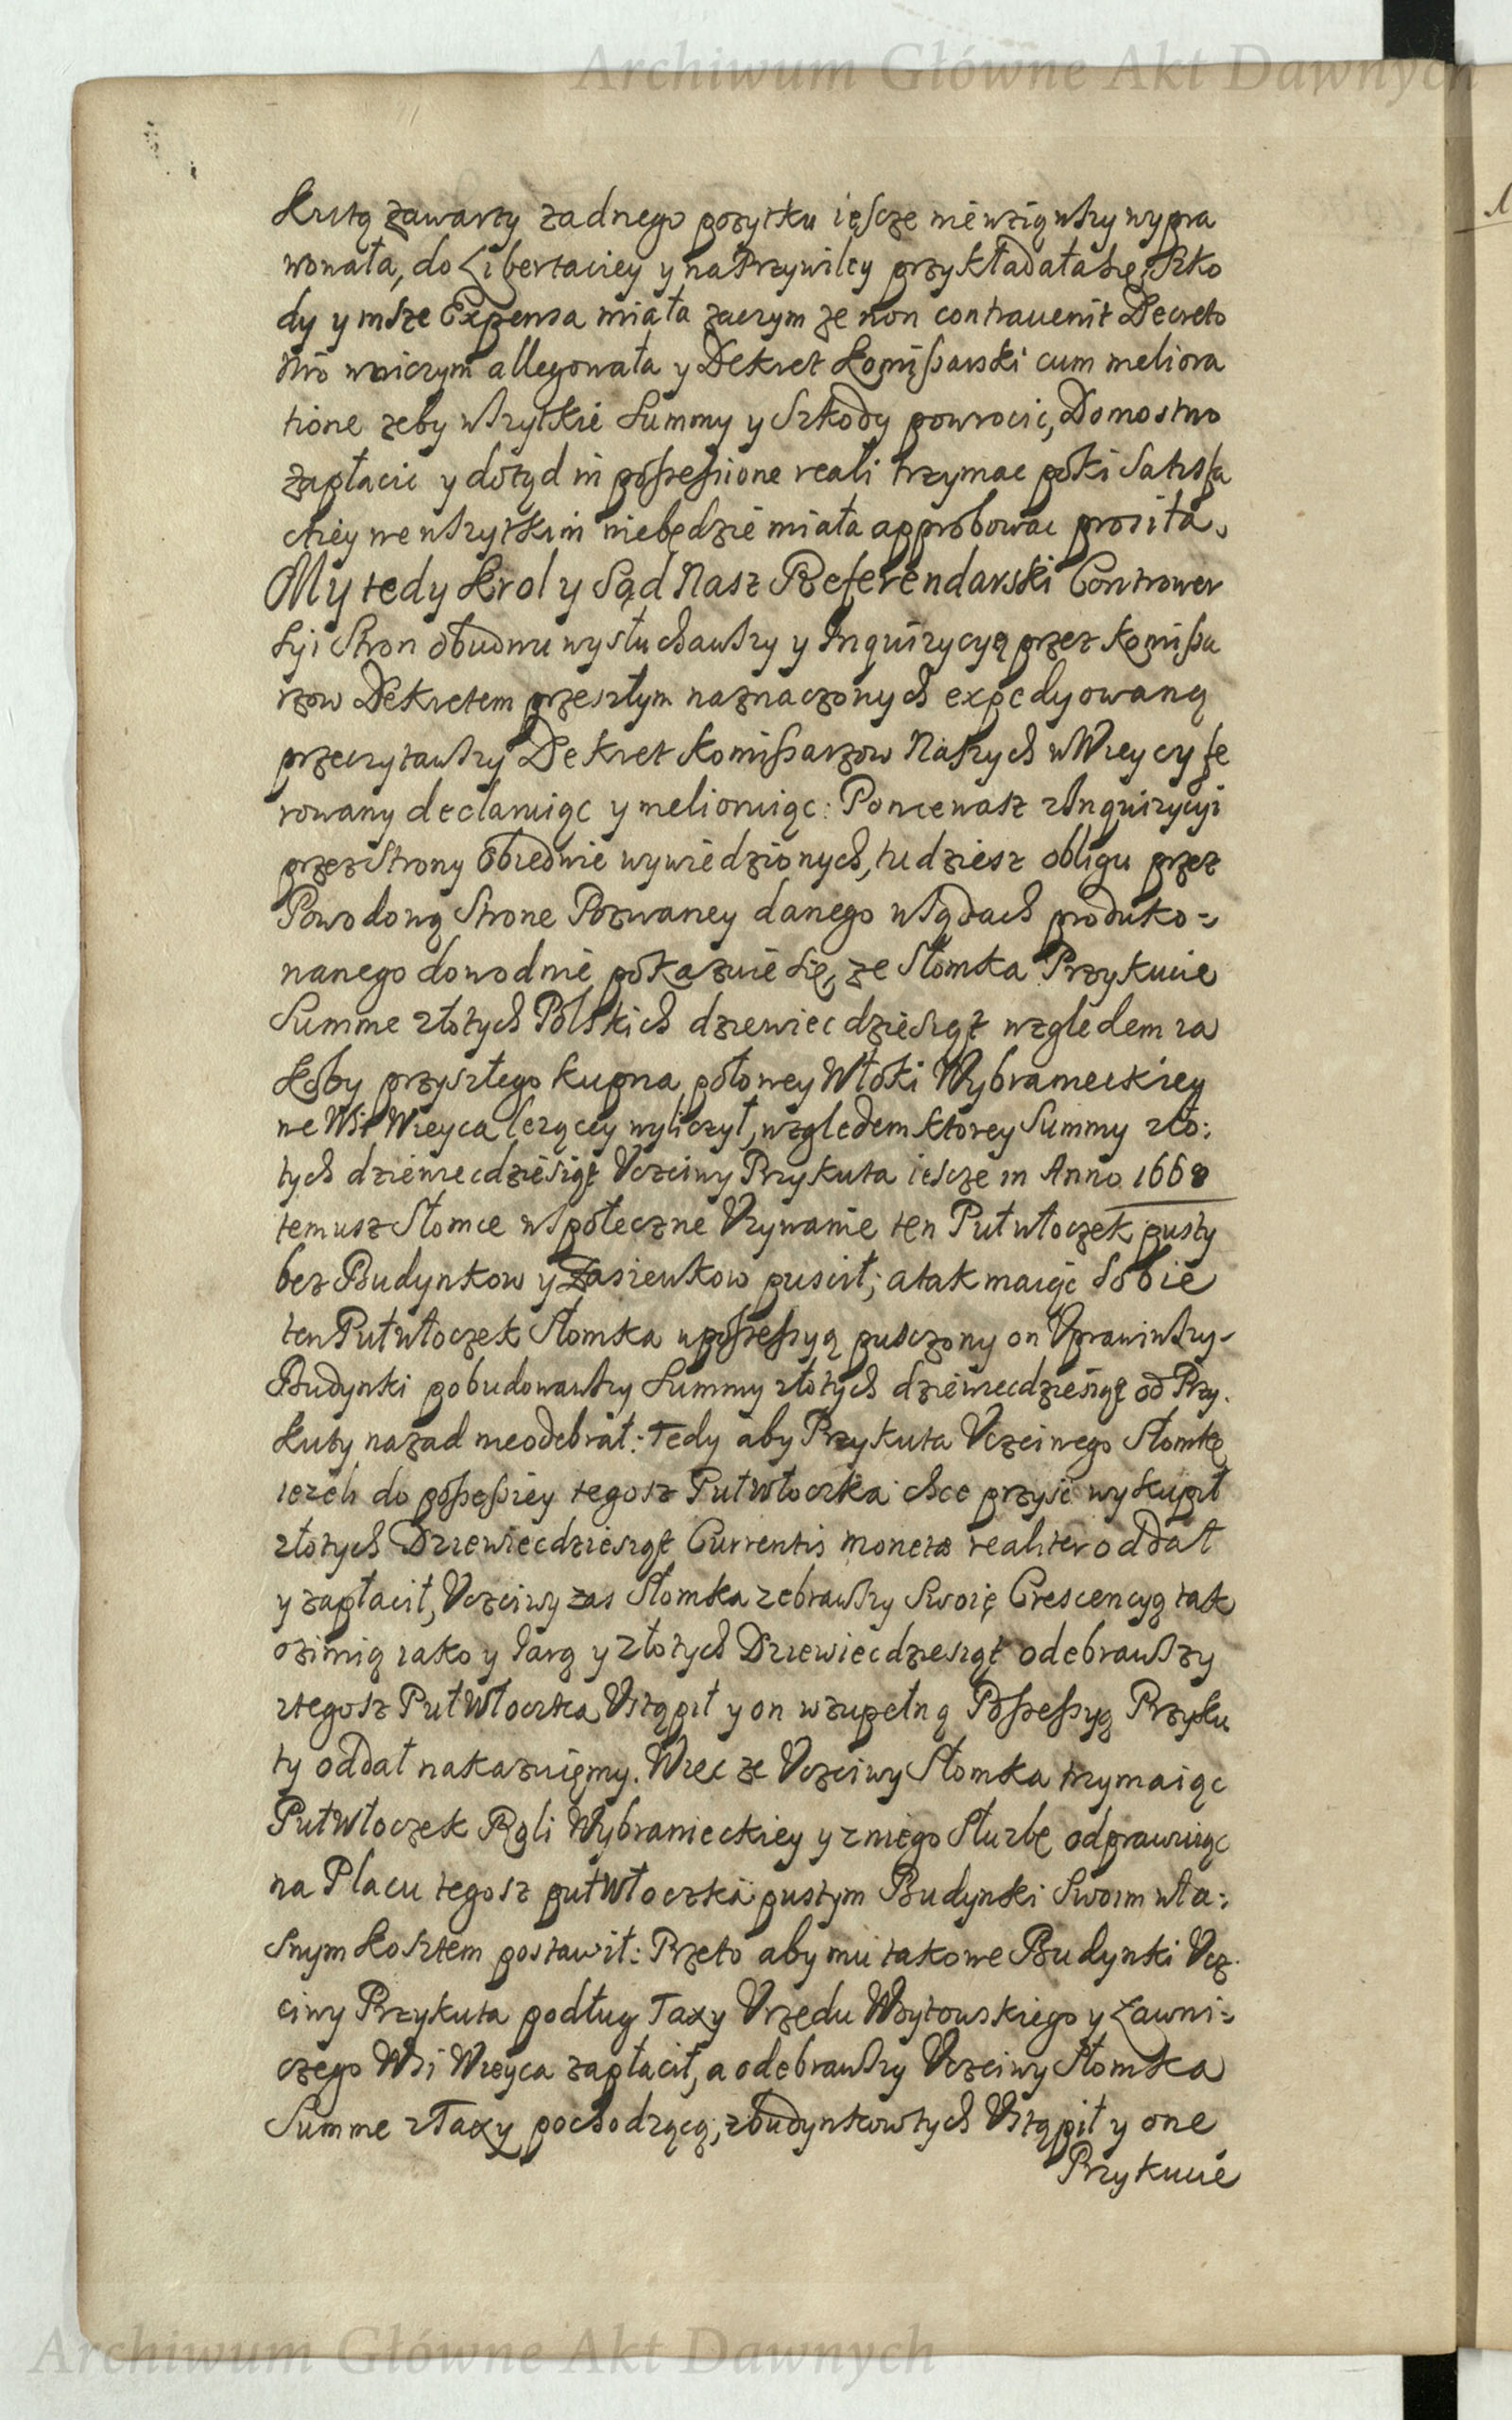 Archiwum Główne Akt Dawnych
Kutą zawarty zadnego pozytku ięscze niewziąwszy wypra
wowała, do Libertaciey y na Przywiley przykładała się, Szko
dy y insze Expensa miała zaczym ze non contravenit Decreto
wniczym allegowała y Dekret Komissarski cum meliora
tione zeby wszytkie Summy y Szkody powrocic, Domostwo
zapłacic y dotąd in possessione reali trzymac poki Satisfa
ctiey we wszytkim niebędzie miała approbowac prosiła.
My tedy Krol y Sąd Nasz Referendarski Contrower
syi Stron obudwu wysłuchawszy y Inquizycyą przez Komissa
rzow Dekretem przeszłym naznaczonych expedyowaną
przeczytawszy Dekret Komissarzow Naszych w Wieycy fe
rowany declaruiąc y melioruiąc: Poniewasz z Inquizycyi
przez Strony obiedwie wywiedzionych, tudziesz obligu przez
Powodową Strone Pozwaney danego w Sądach produko-
wanego dowodnie pokazuie się, ze Słomka Przykucie
Summe złotych Polskich dziewiecdziesiąt względem ia
koby przyszłego kupna połowey Włoki Wybranieckiey
we Wsi Wieyca lezącey wyliczył, względem ktorey Summy zło:
tych dziewiecdziesiąt Uczciwy Przykuta iescze in Anno 1668
temusz Słomce wspołeczne Uzywanie ten Puł włoczek pusty
bez Budynkow y Zasiewkow puscił; a tak maiąc Sobie
ten Puł włoczek Słomka w possessyą pusczony on Uprawiwszy
Budynki pobudowawszy Summy złotych dziewiecdziesiąt od Przy-
kuty nazad nieodebrał: Tedy aby Przykuta Uczciwego Słomkę
iezeli do possessiey tegosz Puł Włoczka chce przyść wykupił
złotych Dziewiecdziesiąt Currentis moneta realiter oddał
y zapłacił, Uczciwy zas Słomka zebrawszy Swoię Crescencyą tak
ozimią iako y Iarą y złotych Dziewiecdziesiąt odebrawszy
z tegosz Puł Włoczka Ustąpił y on w zupełną Possessyą Przyku
ty oddał nakazuięmy. Więc ze Uczciwy Słomka trzymaiąc
Puł Włoczek Roli Wybranieckiey y z niego Słuzbę odprawuiąc
na Placu tegosz puł Włoczka pustym Budynki Swoim wła:
snym kosztem postawił: Przeto aby mu takowe Budynki Ucz-
ciwy Przykuta podług Taxy Urzędu Woytowskiego y Ławni-
czego Wsi Wieyca zapłacił, a odebrawszy Uczciwy Słomka
Summe z Taxy pochodzącą, z budynkow tych Ustąpił y one
Przykucie
Archiwum Główne Akt Dawnych